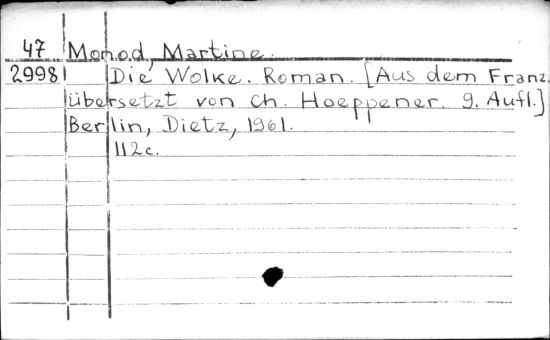 47 Monod, Martine.
2998 Die Wolke. Roman. [Aus dem Franz.
übersetzt von Ch. Hoeppener. 9. Aufl.]
Berlin, Dietz, 1961.
112c.